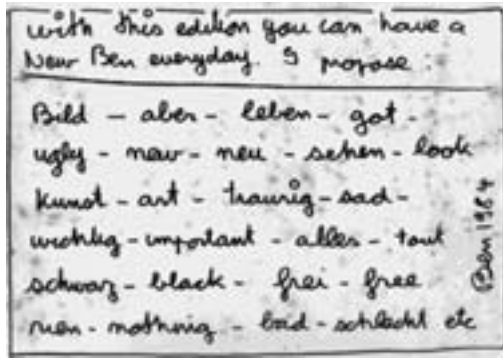 with this edition you can have a
New Ben everyday. I propose :
Bild - aber - leben - got -
ugly - new - neu - sehen - look
kunst - art - traurig - sad -
wichtig - important - alles - tout
schwarz - black - frei - free
rien - nothing - bad - schlecht etc
Ben 1984